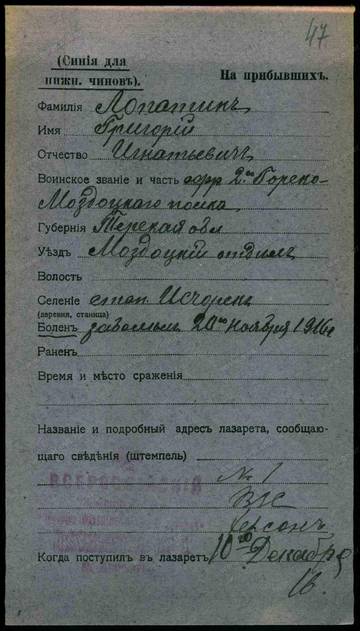 47
(Синія для
нижн. чиновъ).
На прибывшихъ.
Фамилія Лопатинъ
Имя Григорій
Отчество Игнатьевичъ
Воинское званіе и часть ефр 2го Горско-
Моздоцкаго полка
Губернія Терская обл
Уѣздъ Моздоцкій отдѣлъ
Волость
Селеніе стан. Ищорск
(деревня, станица)
Боленъ заболѣлъ 20го Ноября 1916г
Раненъ
Время и мѣсто сраженія
Названіе и подробный адресъ лазарета, сообщаю-
щаго свѣдѣнія (штемпель)
№ 1
Херсонъ
Когда поступилъ въ лазаретъ 10го Декабря
16.